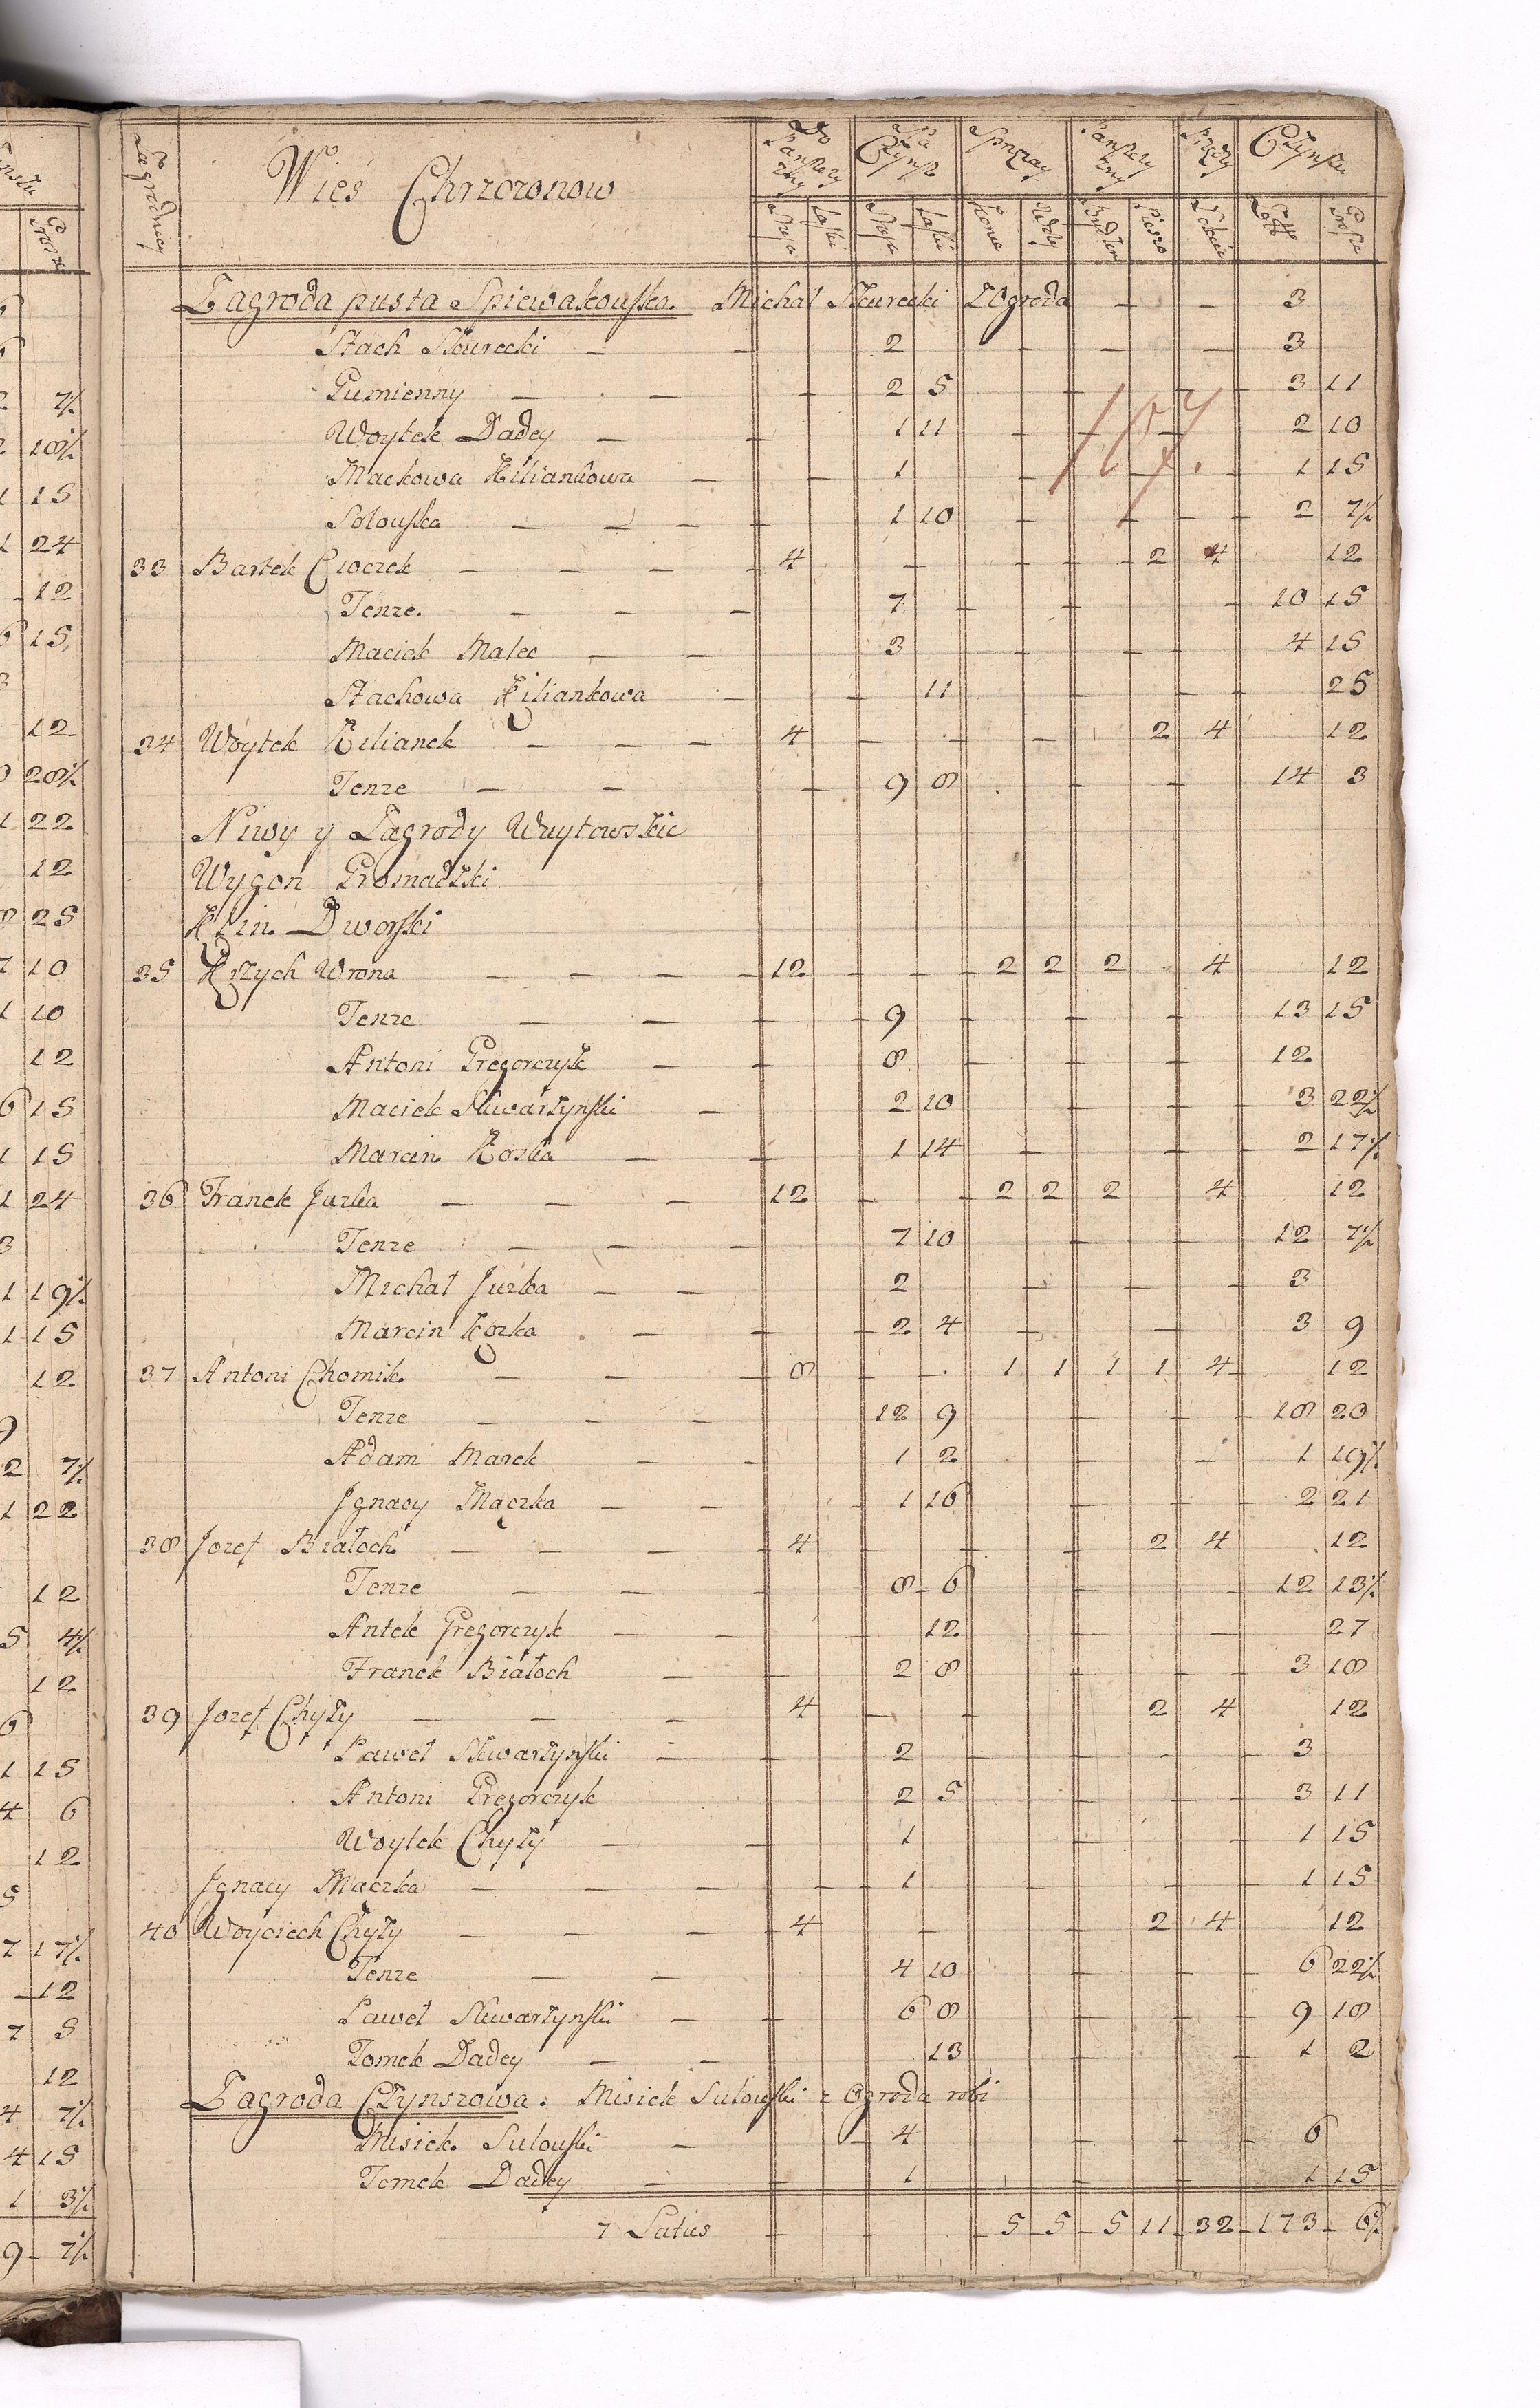 Zagrodnicy Wieś Chrzczonow Do Panszczyzny Na Czynsz Sprzęzay Panszczyzny Przędzy Czynszu
Staja Laski Staja Laski Konie Woły Bydłem Pieszo Łokcie Złotte Grosze
Zagroda pusta Spiewakouska Michał Skurecki ZOgroda — — 3
Stach Skurecki — — 2 — — — 3
Gumienny — — — 2 5 — — 3 11
Woytek Dadey — — 1 11 — — — 2 10
Mackowa Kiliankowa — — 1 — — — 1 15
Solouska — — — — 1 10 — — — — 2 7½
33 Bartek Cwoczek — — — — 4 — — — — 2 4 12
Tenze — — — 7 — — — 10 15
Maciek Malec — — 3 — — — 4 15
Stachowa Kiliankowa — — 11 — — — 25
34 Woytek Kilianek — — — 4 — — — 2 4 12
Tenze — — — 9 8 — — 14 3
Niwy y Zagrody Wuytowskie
Wygon Gromadzki
Klin Dworski
35 Krzych Wrona — — — — 12 — — — 2 2 2 4 12
Tenze — — — — 9 — — — 13 15
Antoni Gregorczyk — — 8 — — — 12
Maciek Skwarzynski — 2 10 — — — 3 22½
Marcin Kozka — — 1 14 — — — — 2 17½
36 Franek Jurka — — — 12 — — 2 2 2 4 12
Tenze — — — 7 10 — — 12 7½
Michał Jurka — — 2 — — — 3
Marcin Kozka — — — 2 4 — — 3 9
37 Antoni Chomik — — — 8 — — 1 1 1 1 4 12
Tenze — — — 12 9 — — — 18 20
Adam Marek — — — 1 2 — — 1 19½
Jgnacy Mączka — — — 1 16 — — — 2 21
38 Jozef Białoch — — — 4 — — — 2 4 12
Tenze — — — 8 6 — — 12 13½
Antek Gregorczyk — — — 12 — — — 27
Franek Białoch — — 2 8 — — — 3 18
39 Jozef Chyzy — — — 4 — — 2 4 12
Paweł Skwarzynski — — 2 — — — — 3
Antoni Gregorczyk 2 5 — — — — 3 11
Woytek Chyzy — — 1 — — 1 15
Jgnacy Mączka — — — — — 1 — — — — 1 15
40 Woyciech Chyzy — — — 4 — — — 2 4 12
Tenze — — 4 10 — — — 6 22½
Paweł Skwarzynski — — 6 8 — — — 9 18
Tomek Dadey — — 13 — — — 1 2
Zagroda Czynszowa. Misiek Sulouski z Ogroda robi
Misiek Sulouski — — 4 — — — 6
Tomek Dadey — — 1 — — 1 15
7 Latus — — — 5 5 5 11 32 173 6½